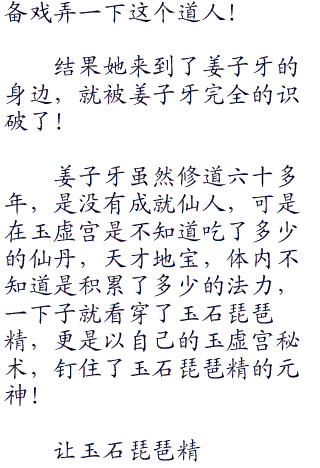 备戏弄一下这个道人！
结果她来到了姜子牙的
身边，就被姜子牙完全的识
破了！
姜子牙虽然修道六十多
年，是没有成就仙人，可是
在玉虚宫是不知道吃了多少
的仙丹，天才地宝，体内不
知道是积累了多少的法力，
一下子就看穿了玉石琵琶
精，更是以自己的玉虚宫秘
术，钉住了玉石琵琶精的元
神！
让玉石琵琶精